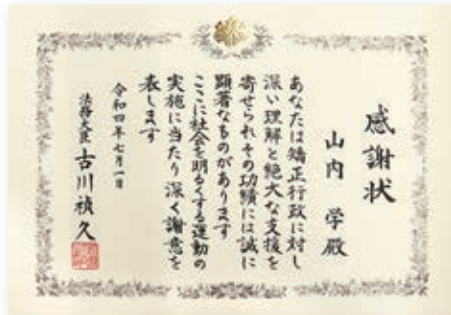 感謝状
山内 学 殿
あなたは矯正行政に対し
深い理解と絶大な支援を
寄せられその功績には誠に
顕著なものがあります
ここに社会を明るくする運動の
実施に当たり深く謝意を
表します
令和四年七月一日
法務大臣 古川禎久